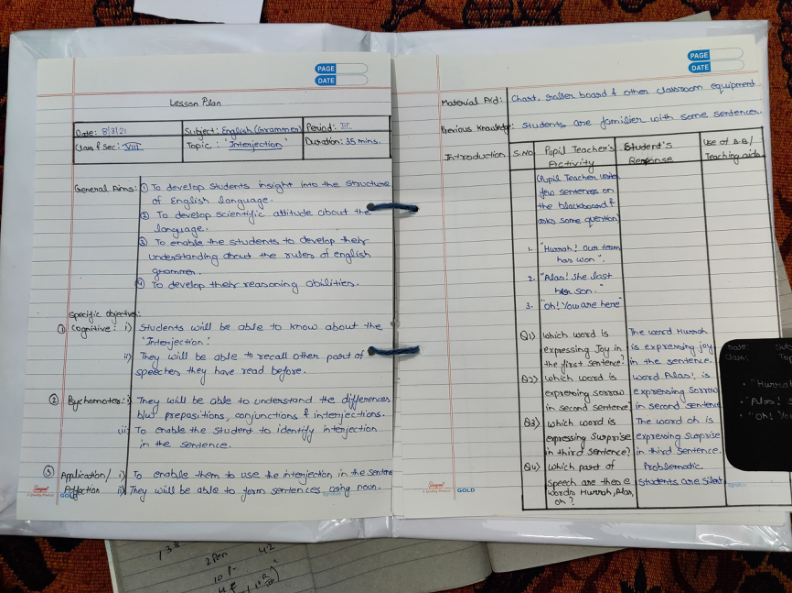 PAGE
DATE
Lesson Plan
Date: 8/3/21
Subject: English (Grammer)
Period: III
Class & Sec: VIII
Topic: "Interjection"
Duration: 35 mins.
General Aims: ① To develop students insight into the structure
of English language.
② To develop scientific attitude about the
language.
③ To enable the students to develop their
understanding about the rules of english
grammer.
④ To develop their reasoning abilities.
Specific objective:
① Cognitive: i) Students will be able to know about the
'Interjection'.
ii) They will be able to recall other part of
speeches they have read before.
② Psychomotor: i) They will be able to understand the differences
b/w prepositions, conjunctions & interjections.
ii) To enable the student to identify interjection
in the sentence.
③ Application/ i) To enable them to use the interjection in the sentence
ii) They will be able to form sentences using noun.
GOLD
PAGE
DATE
Material Aid: Chart, roller board & other classroom equipment.
Previous Knowledge: Students are familier with some sentences.
Introduction
S.No
Pupil Teacher's
Activity
Student's
Response
Use of B.B/
Teaching aids
(Pupil Teacher writes
few sentences on
the blackboard &
asks some question)
1. "Hurrah! Our team
has won".
2. "Alas! She lost
her son."
3. "Oh! You are here"
Q1) Which word is
expressing Joy in
the first sentence?
The word Hurrah
is expressing joy
in the sentence.
Q2) Which word is
expressing sorrow
in second sentence
Word Alas!, is
expressing Sorrow
in second sentence
Q3) Which word is
expressing Surprise
in third sentence?
The word oh is
expressing surprise
in third sentence.
Q4) Which part of
speech are these
words Hurrah, Alas,
oh?
Problematic
Students are silent
GOLD
Date:
Class:
• "Hurrah
• "Alas! S
• "Oh! You
138
2 Pen
42
10 P